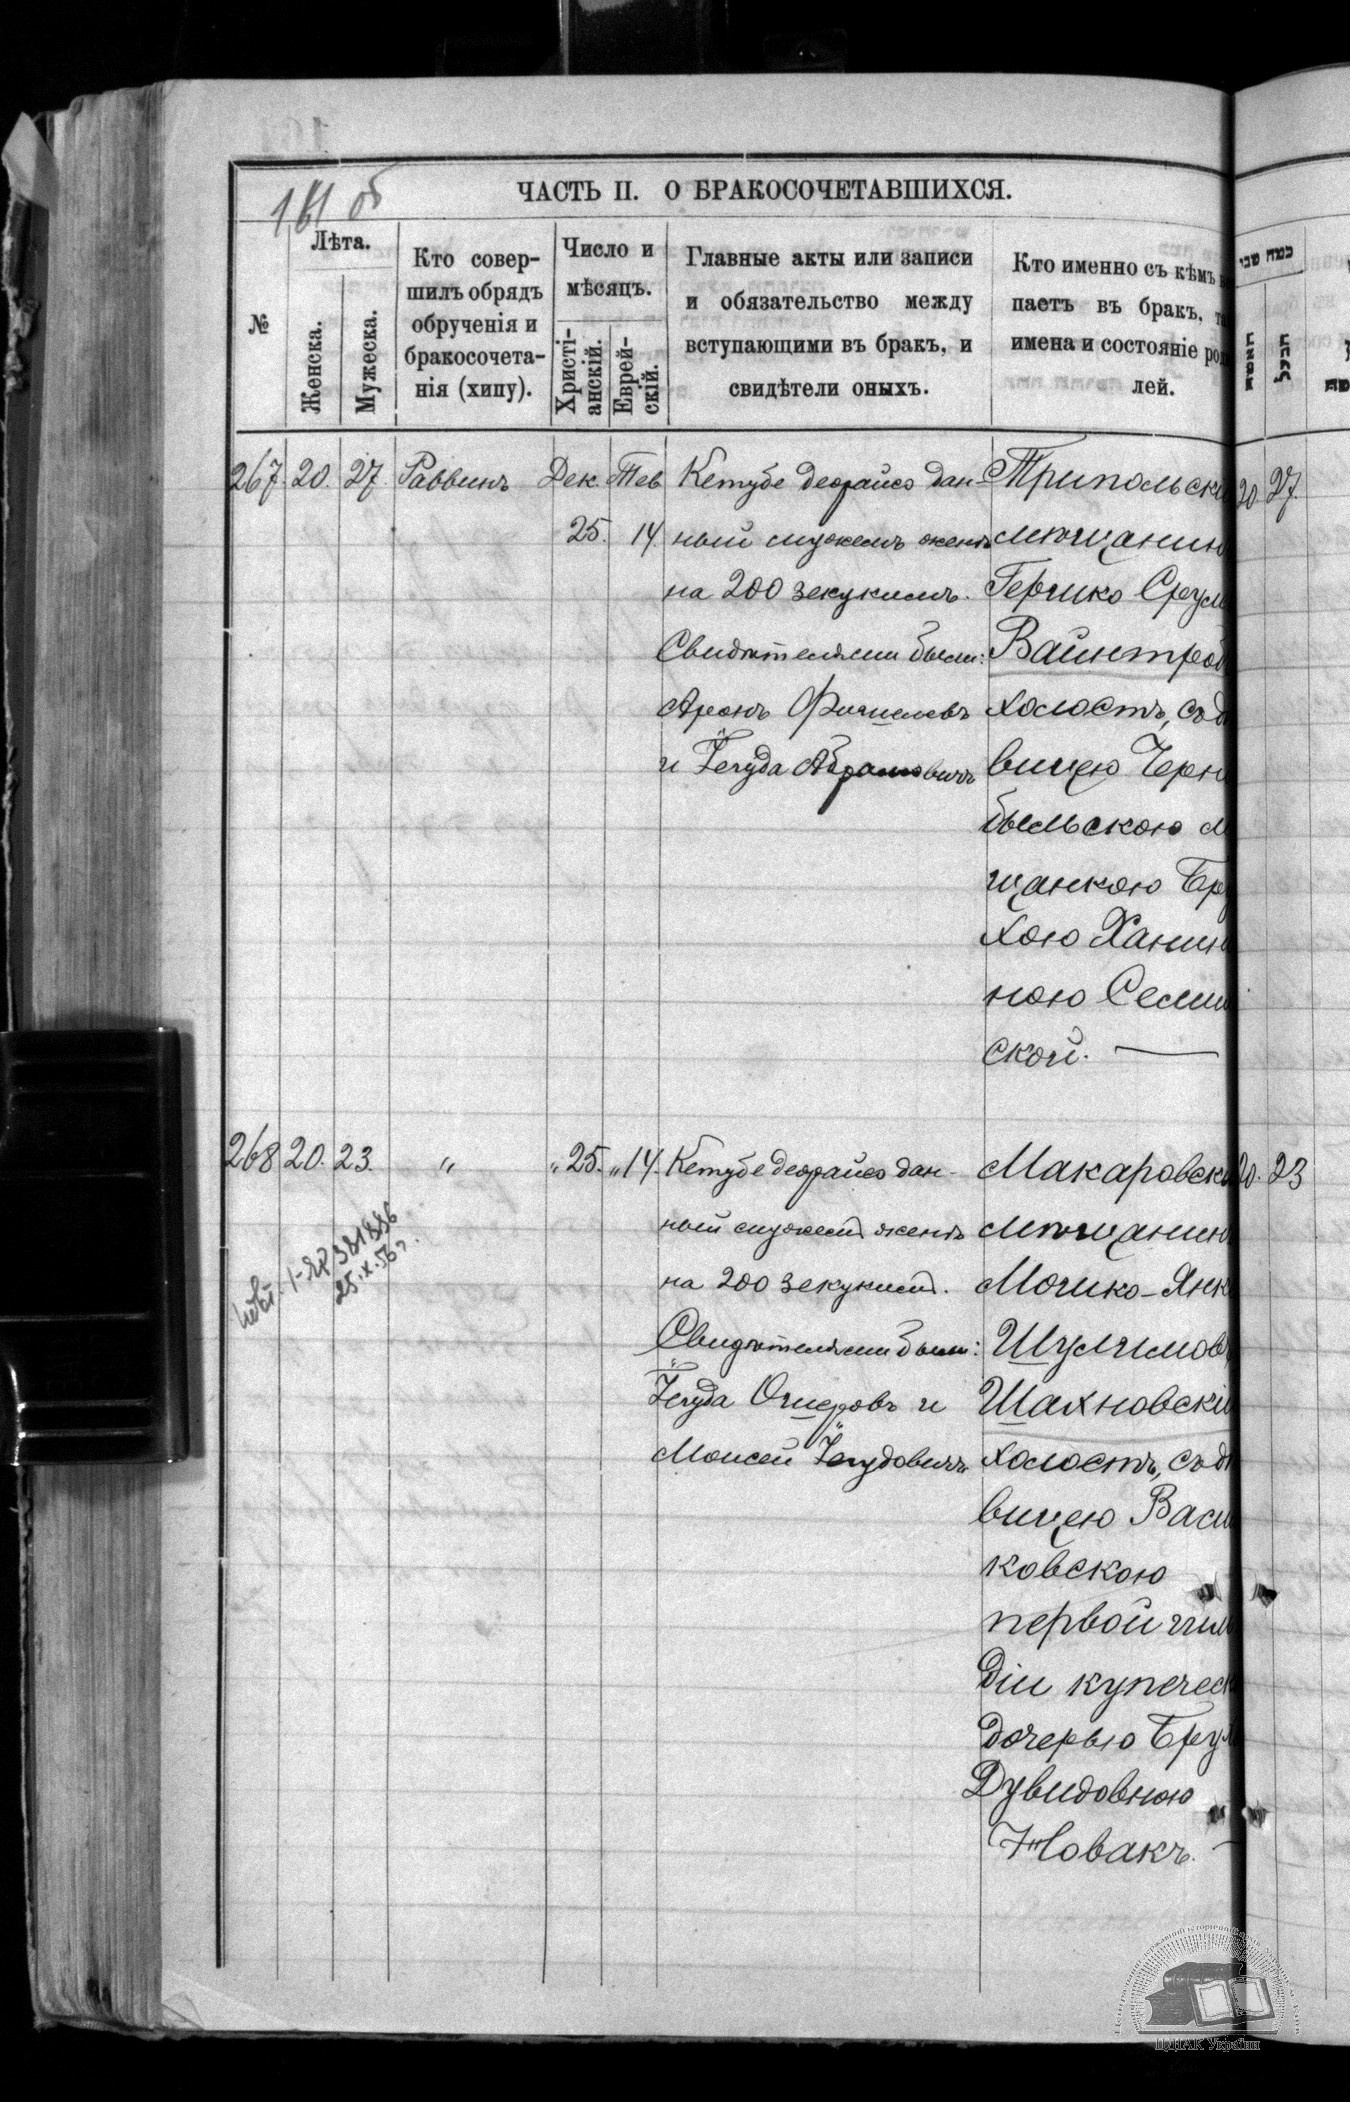 161 об
ЧАСТЬ II. О БРАКОСОЧЕТАВШИХСЯ.
№
Лѣта.
Женска.
Мужеска.
Кто совер-
шилъ обрядъ
обрученія и
бракосочета-
нія (хипу).
Число и
мѣсяцъ.
Христі-
анскій.
Еврей-
скій.
Главные акты или записи
и обязательство между
вступающими въ бракъ, и
свидѣтели оныхъ.
Кто именно съ кѣмъ
паетъ въ бракъ,
имена и состояніе
лей.
כמה שני
האשה
הבעל
267. 20. 27. Раввинъ Дек. Тев
25. 14.
Кетубе деорайсо дан-
ный мужемъ женѣ
на 200 зекукимъ.
Свидѣтелями были:
Аронъ Фишелевъ
и Іегуда Абрамовичъ
Трипольскі
мѣщанин
Гершко Срул
Вайнтроб
холостъ, съ дѣ
вицею Черн
быльскою м
щанкою Бру
хою Ханин
ною Семи
ской. —
20. 27.
268 20. 23. " " 25. " 14.
Кетубе деорайсо дан-
ный мужемъ женѣ
на 200 зекукимъ.
Свидѣтелями были:
Іегуда Ошеровъ и
Моисей Іегудовичъ
Макаровскі
мѣщанин
Мошко-Янк
Шулимов
Шахновскій
холостъ, съ дѣ
вицею Васи
ковскою
первой гил
діи купеческ
дочерью Брух
Дувидовною
Новакъ. —
20. 23
381886
25.X.56 г.
ЦДІАК України